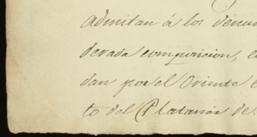 Admitan á los denun
derada composicion, l
dan por el Oriente
to del Platanar de